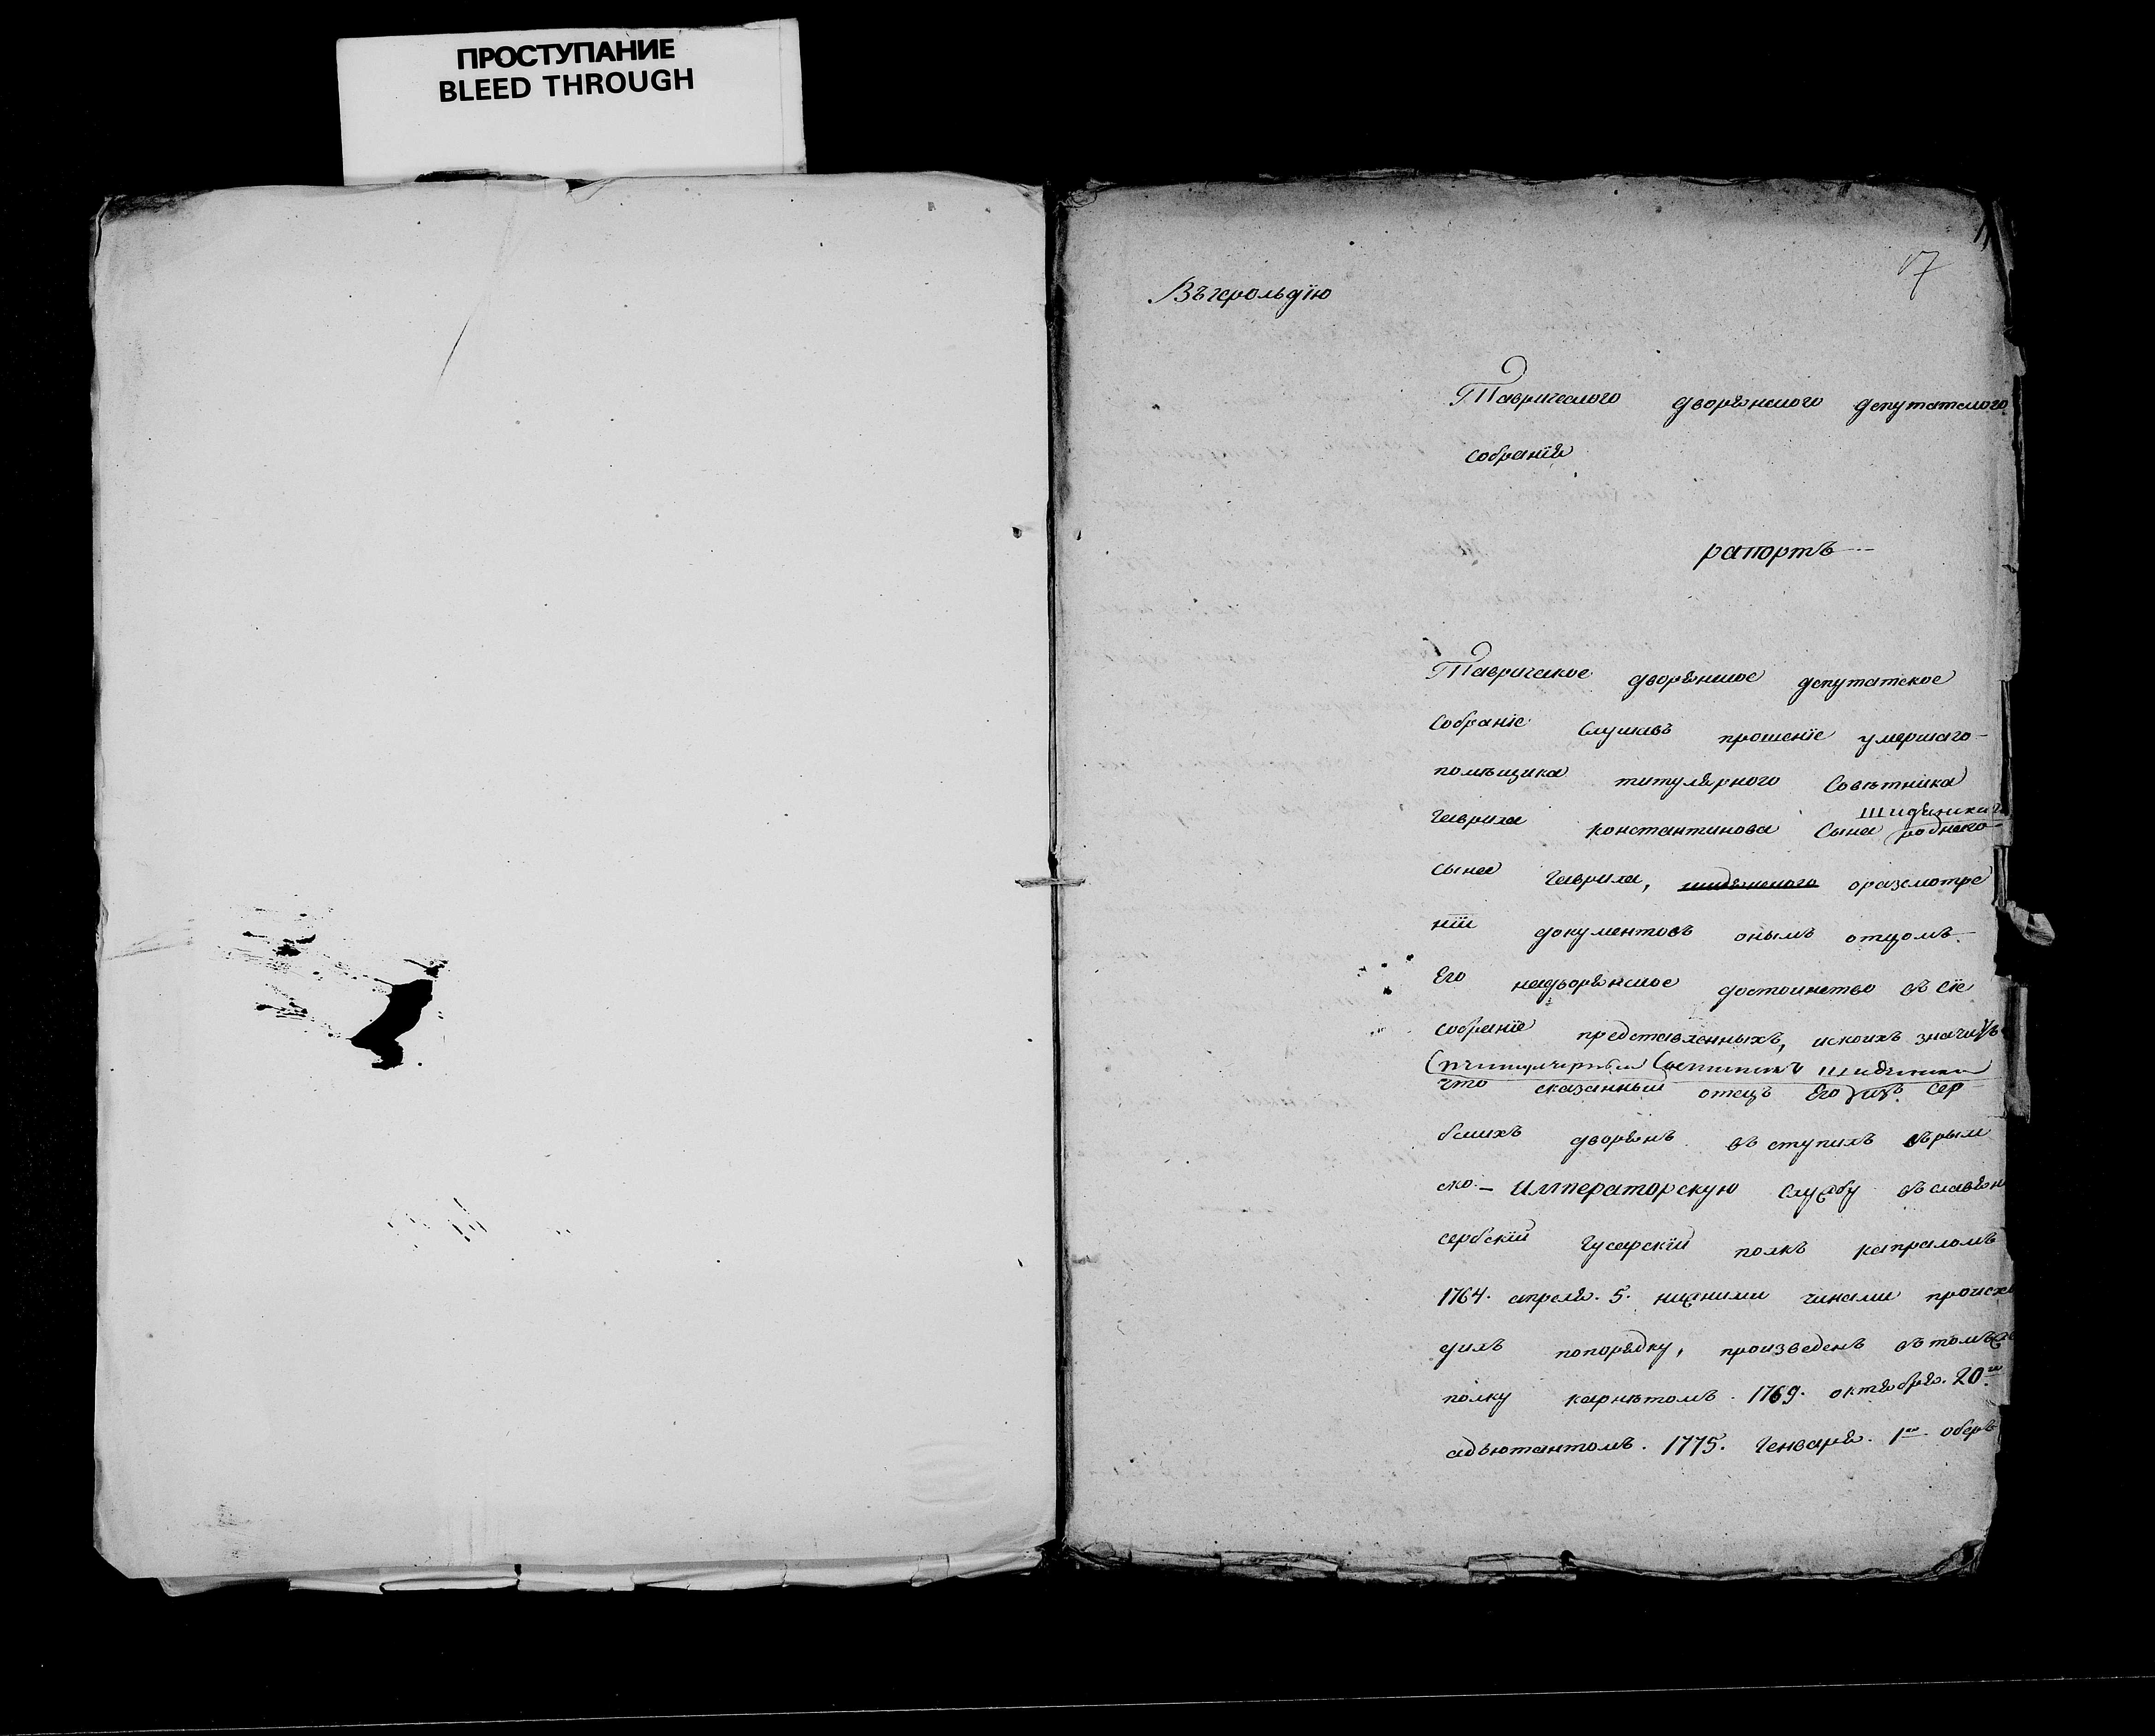 ПРОСТУПАНИЕ
BLEED THROUGH
17
Въ герольдїю
Таврическаго дворянскаго депутатскаго
собранїя
рапортъ
Таврическое дворянское депутатское
собранїе слушавъ прошенїе умершаго
помѣщика титулярнаго Совѣтника
Гаврила Константинова Сына роднаго
сына Гаврила, оразсмотре
нїи документовъ онымъ отцомъ
Его надворянское достоинство въ сїе
собранїе представленныхъ, искоихъ значитъ
что сказанный отецъ Его изъ Сер
бскихъ дворянъ въступилъ въ
Императорскую службу въ славян
сербскїй Гусарскїй полкъ капраломъ
1764. апреля. 5. нижними чинами происхо
дилъ попорядку, произведенъ въ томъ же
полку карнетомъ. 1769. октября. 20го
адъютантомъ. 1775. Генваря. 1го оберъ